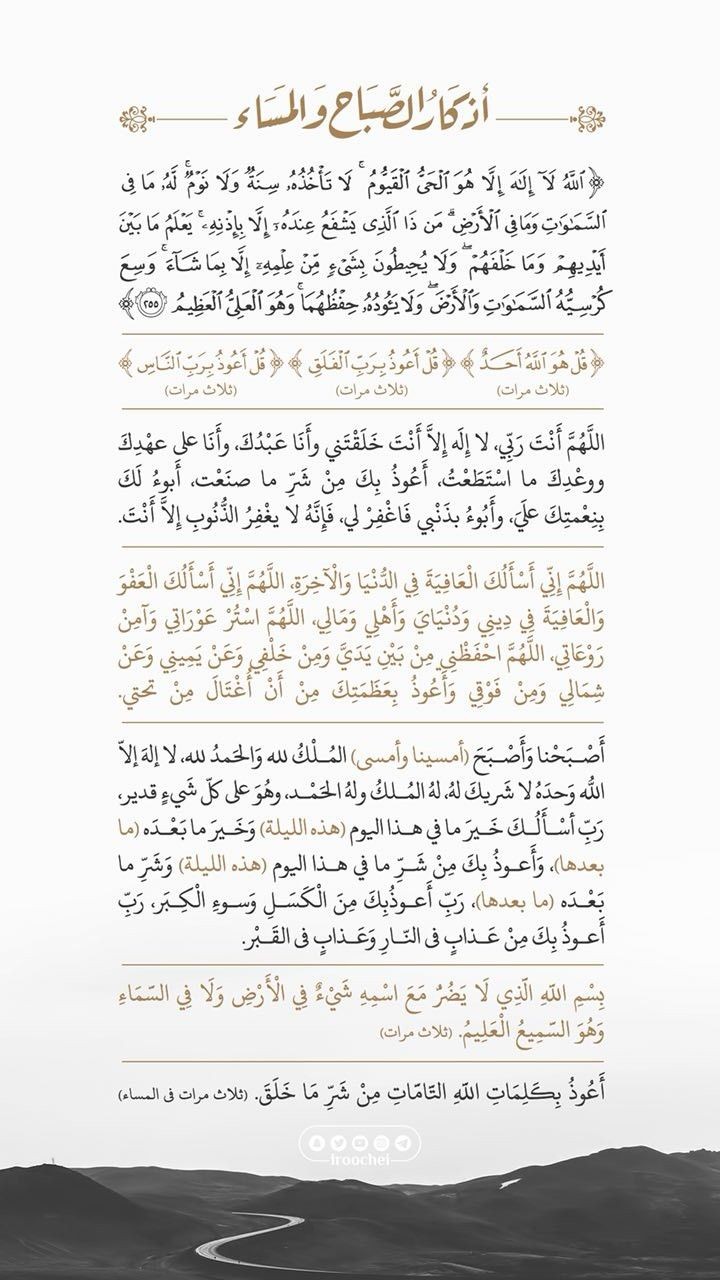 أذكار الصَّبَاح وَالمَسَاء
﴿ٱللَّهُ لَآ إِلَٰهَ إِلَّا هُوَ ٱلْحَىُّ ٱلْقَيُّومُ ۚ لَا تَأْخُذُهُۥ سِنَةٌ وَلَا نَوْمٌ ۚ لَّهُۥ مَا فِى
ٱلسَّمَٰوَٰتِ وَمَا فِى ٱلْأَرْضِ ۗ مَن ذَا ٱلَّذِى يَشْفَعُ عِندَهُۥٓ إِلَّا بِإِذْنِهِۦ ۚ يَعْلَمُ مَا بَيْنَ
أَيْدِيهِمْ وَمَا خَلْفَهُمْ ۖ وَلَا يُحِيطُونَ بِشَىْءٍ مِّنْ عِلْمِهِۦٓ إِلَّا بِمَا شَآءَ ۚ وَسِعَ
كُرْسِيُّهُ ٱلسَّمَٰوَٰتِ وَٱلْأَرْضَ ۖ وَلَا يَـُٔودُهُۥ حِفْظُهُمَا ۚ وَهُوَ ٱلْعَلِىُّ ٱلْعَظِيمُ ٢٥٥﴾
﴿قُلْ هُوَ ٱللَّهُ أَحَدٌ﴾ ﴿قُلْ أَعُوذُ بِرَبِّ ٱلْفَلَقِ﴾ ﴿قُلْ أَعُوذُ بِرَبِّ ٱلنَّاسِ﴾
(ثلاث مرات) (ثلاث مرات) (ثلاث مرات)
اللَّهُمَّ أَنْتَ رَبِّي، لا إِلَه إِلاَّ أَنْتَ خَلَقْتَني وأَنَا عَبْدُكَ، وأَنَا على عهْدِكَ
ووعْدِكَ ما اسْتَطَعْتُ، أَعُوذُ بِكَ مِنْ شَرِّ ما صنَعْت، أَبوءُ لَكَ
بِنِعْمتِكَ علَيَ، وأَبُوءُ بذَنْبي فَاغْفِرْ لي، فَإِنَّهُ لا يغْفِرُ الذُّنُوبِ إِلاَّ أَنْتَ.
اللَّهُمَّ إِنِّي أَسْأَلُكَ الْعَافِيَةَ فِي الدُّنْيَا وَالْآخِرَةِ، اللَّهُمَّ إِنِّي أَسْأَلُكَ الْعَفْوَ
وَالْعَافِيَةَ فِي دِينِي وَدُنْيَايَ وَأَهْلِي وَمَالِي، اللَّهُمَّ اسْتُرْ عَوْرَاتِي وَآمِنْ
رَوْعَاتِي، اللَّهُمَّ احْفَظْنِي مِنْ بَيْنِ يَدَيَّ وَمِنْ خَلْفِي وَعَنْ يَمِينِي وَعَنْ
شِمَالِي وَمِنْ فَوْقِي وَأَعُوذُ بِعَظَمَتِكَ مِنْ أَنْ أُغْتَالَ مِنْ تحتي.
أَصْبَحْنا وَأَصْبَحَ (أمسينا وأمسى) المُلْكُ لله وَالحَمدُ لله، لا إلهَ إلاّ
اللّه وَحدَهُ لا شَريكَ لهُ، لهُ المُلكُ ولهُ الحَمْد، وهُوَ على كلّ شَيءٍ قدير،
رَبِّ أسْأَلُكَ خَيرَ ما في هذا اليوم (هذه الليلة) وَخَيرَ ما بَعْدَه (ما
بعدها)، وَأَعوذُ بِكَ مِنْ شَرِّ ما في هذا اليوم (هذه الليلة) وَشَرِّ ما
بَعْدَه (ما بعدها)، رَبِّ أَعوذُبِكَ مِنَ الْكَسَلِ وَسوءِ الْكِبَر، رَبِّ
أَعوذُ بِكَ مِنْ عَذابٍ في النّارِ وَعَذابٍ في القَبْر.
بِسْمِ اللهِ الَّذِي لَا يَضُرُّ مَعَ اسْمِهِ شَيْءٌ فِي الْأَرْضِ وَلَا فِي السّمَاءِ
وَهُوَ السّمِيعُ الْعَلِيمُ. (ثلاث مرات)
أَعُوذُ بِكَلِمَاتِ اللهِ التّامّاتِ مِنْ شَرِّ مَا خَلَقَ. (ثلاث مرات في المساء)
froochei